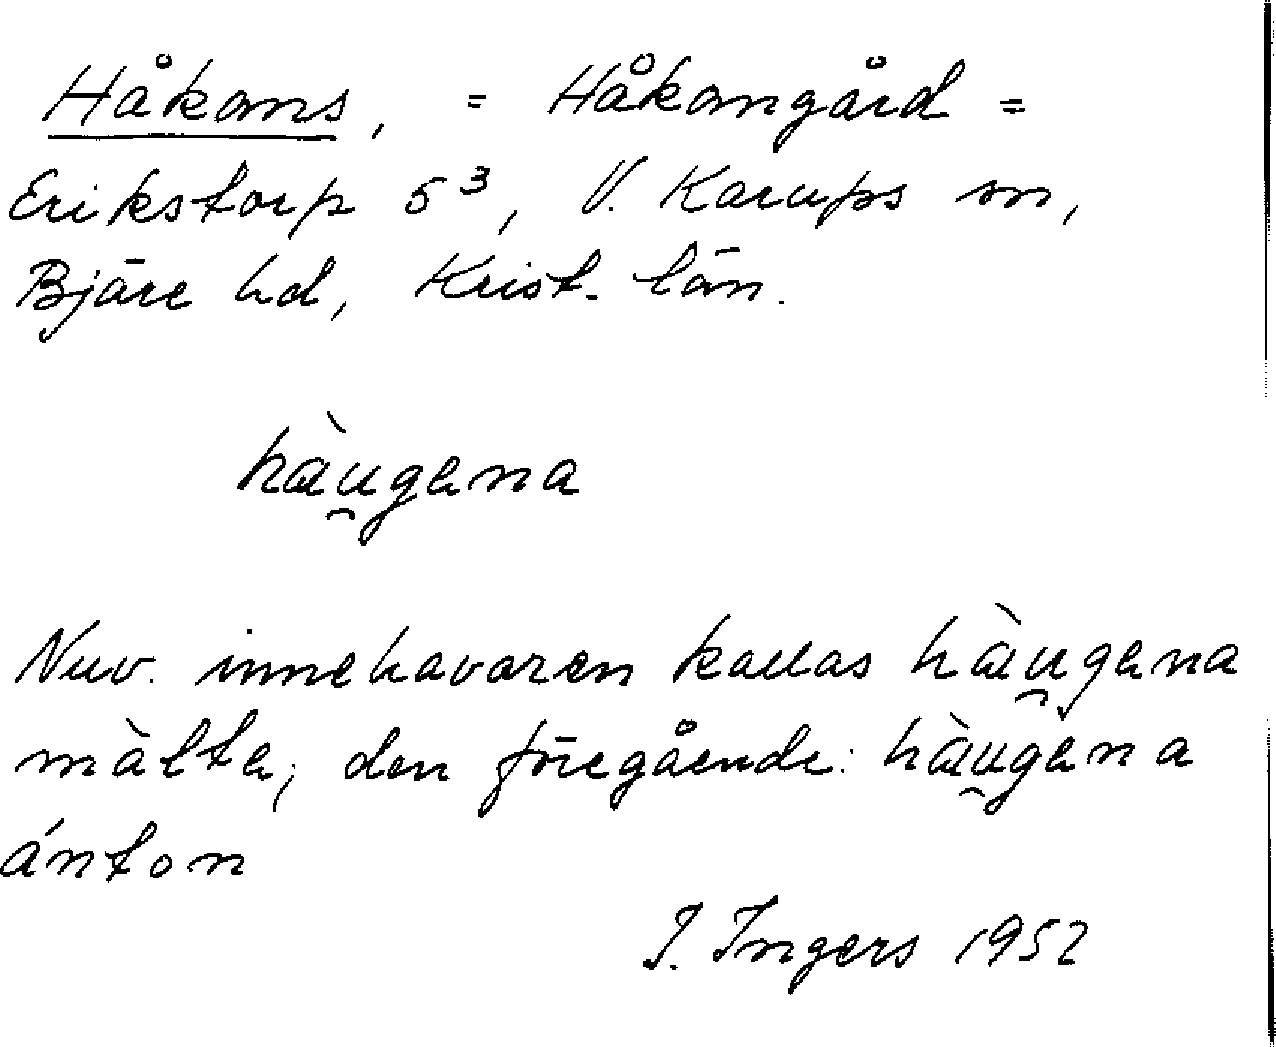 Håkans, = Håkangård =
Erikstorp 5³, V. Karups sn,
Bjäre hd, Krist. län.
hàu̯gena
Nuv. innehavaren kallas hàu̯gena
màlte; den föregående: hàu̯gena
ánton
I. Ingers 1952